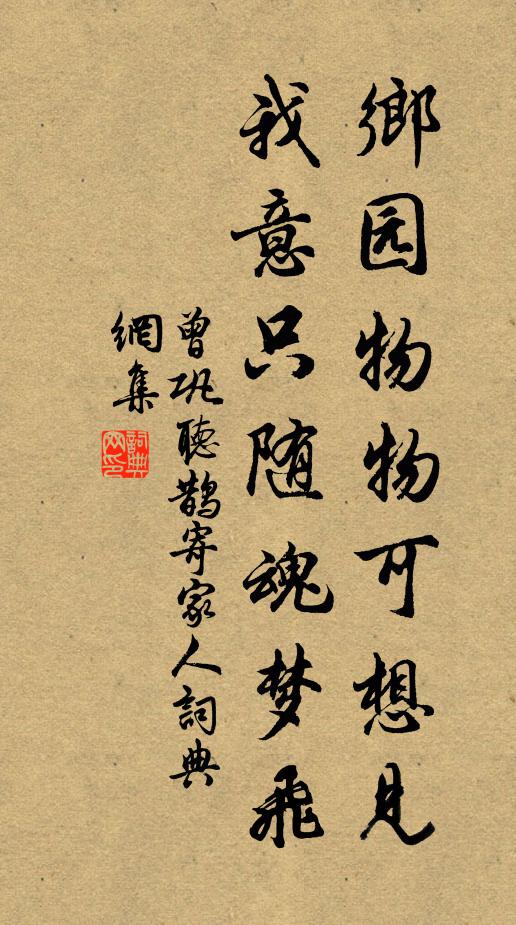 鄉园物物可想見
我意只随魂梦飛
曾巩聽鹊寄家人詞典
網集
詞典
网印